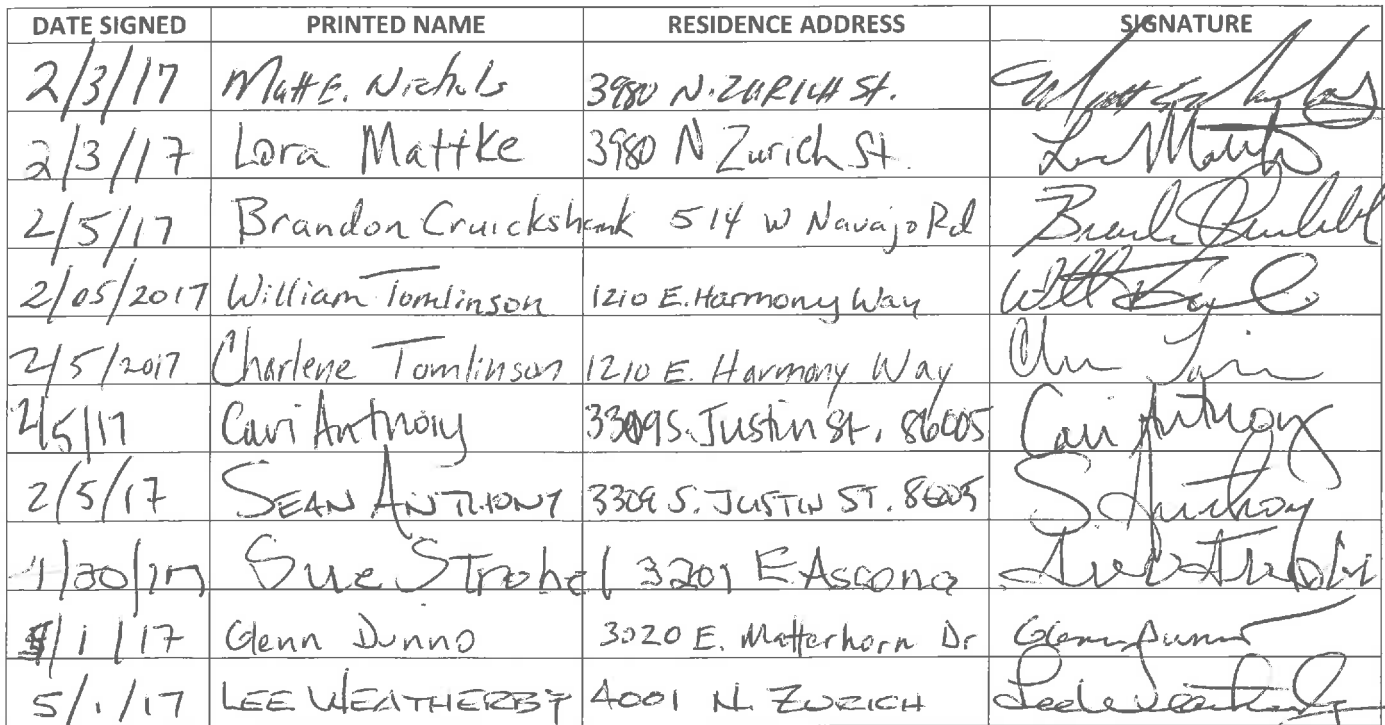 DATE SIGNED PRINTED NAME RESIDENCE ADDRESS SIGNATURE
2/3/17 Matt E. Nichols 3980 N. ZURICH St.
2/3/17 Lora Mattke 3980 N Zurich St.
2/5/17 Brandon Cruickshank 514 W Navajo Rd
2/05/2017 William Tomlinson 1210 E. Harmony Way
2/5/2017 Charlene Tomlinson 1210 E. Harmony Way
2/5/17 Cari Anthony 3309 S. Justin St. 86005 Cari Anthony
2/5/17 SEAN ANTHONY 3309 S. JUSTIN ST. 86005 S Anthony
1/30/17 Sue Strobel 3201 E Ascona
5/1/17 Glenn Dunno 3020 E. Matterhorn Dr Glenn Dunno
5/1/17 LEE WEATHERBY 4001 N. ZURICH